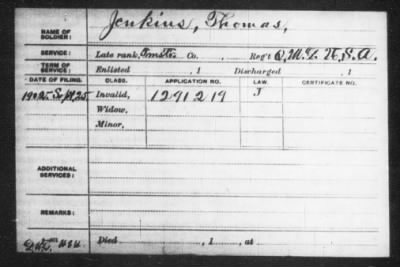 NAME OF SOLDIER: Jenkins, Thomas,
SERVICE: Late rank, Co. , Reg't Q.M.D. U.S.A.
TERM OF SERVICE: Enlisted , 1 Discharged , 1
DATE OF FILING. CLASS. APPLICATION NO. LAW. CERTIFICATE NO.
1902 Sept 25 Invalid, 1291219 J
Widow,
Minor,
ADDITIONAL SERVICES:
REMARKS:
Died , 1 , at